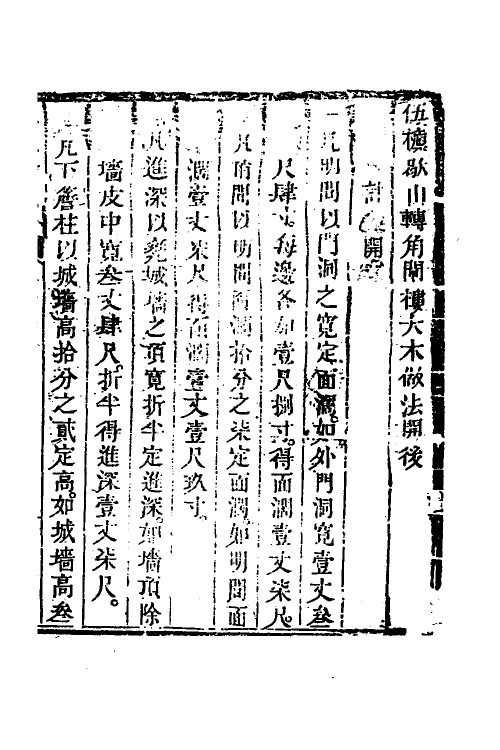 伍檁歇山轉角閘樓大木做法開後
計開
一凡明間以門洞之寬定面濶如外門洞寬壹丈叁
尺肆寸每邊各加壹尺捌寸得面濶壹丈柒尺
凡稍間以明間面濶拾分之柒定面濶如明間面
濶壹丈柒尺得面濶壹丈壹尺玖寸
凡進深以甕城墻之頂寬折半定進深如墻頂除
墻皮中寬叁丈肆尺折半得進深壹丈柒尺
一凡下簷柱以城墻高拾分之貳定高如城墻高叁